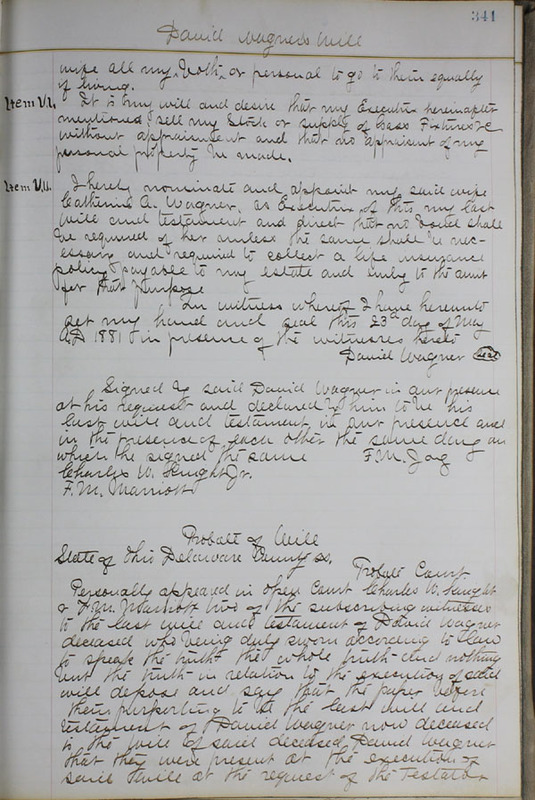 341
David Wagner's Will
wife all my both or personal to go to them equally
if living.
Item VI. It is my will and desire that my Executrix hereinafter
mentioned sell my Stock or supply of Fixtures &c
without appraisement and that no appraisment of my
personal property be made.
Item VII. I hereby nominate and appoint my said wife
Catherine A. Wagner, as Executrix of this my last
will and testament and direct that no bond shall
be required of her unless the same shall be nec-
essary and required to collect a life insurance
policy payable to my estate and only to the amt
for that purpose
In witness whereof I have hereunto
set my hand and seal this 23d day of May
A.D 1881 in presence of the witnesses hereto
David Wagner seal
Signed by said David Wagner in our presence
at his request and declared by him to be his
last will and testament in our presence and
in the presence of each other the same day on
which he signed the same F.M. Joy
Charles W. Jr.
F.M. Marriott
Probate of Will
State of Ohio Delaware County ss.
Probate Court
Personally appeared in open Court Charles W.
& F.M. Marriott two of the subscribing witnesses
to the last will and testament of David Wagner
deceased who being duly sworn according to law
to speak the truth the whole truth and nothing
but the truth in relation to the execution of said
will depose and say that the paper before
them purporting to be the last will and
testament of David Wagner now deceased
is the will of said deceased David Wagner
that they were present at the execution of
said will at the request of the Testator